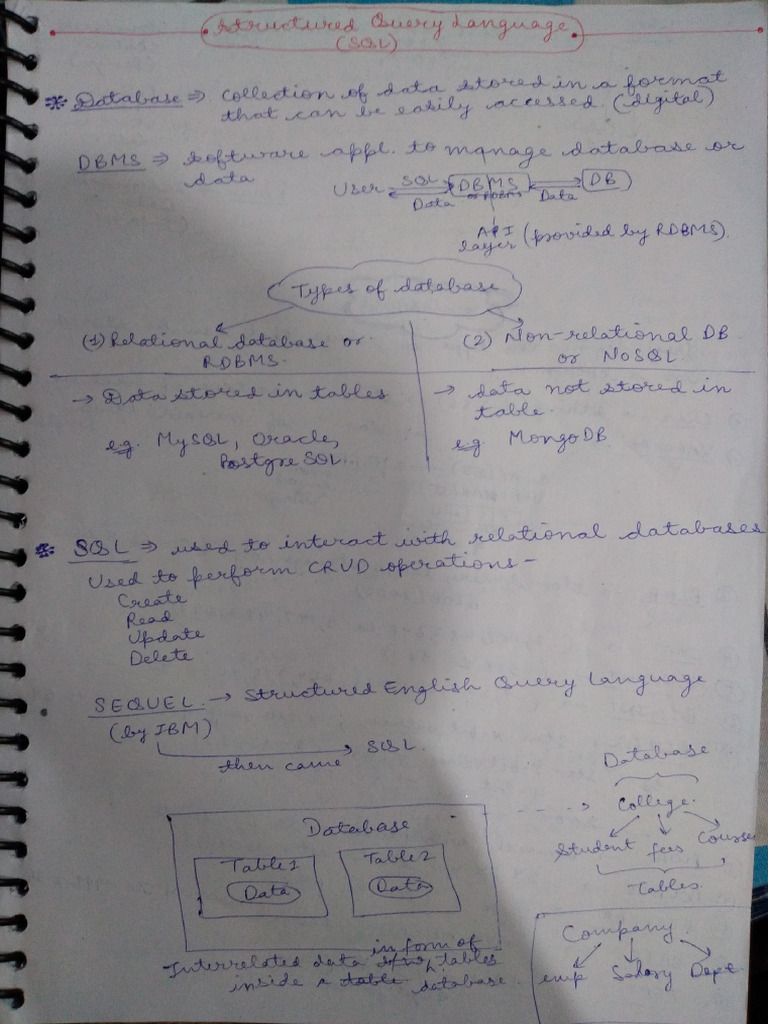 Structured Query Language
(SQL)
* Database ⇒ collection of data stored in a format
that can be easily accessed (digital)
DBMS ⇒ software appl. to manage database or
data
User SQL DBMS DB
Data or RDBMS Data
API
layer (provided by RDBMS)
Types of database
(1) Relational database or
RDBMS.
(2) Non-relational DB
or NoSQL
→ Data stored in tables
e.g. MySQL, Oracle,
PostgreSQL
→ data not stored in
table.
e.g. MongoDB
* SQL ⇒ used to interact with relational databases
Used to perform CRUD operations -
Create
Read
Update
Delete
SEQUEL → Structured English Query Language
(by IBM)
then came → SQL
Database
Table 1
Data
Table 2
Data
in form of
Interrelated data tables
inside a table database.
Database
College.
Student fees Course
Tables.
Company.
emp Salary Dept.